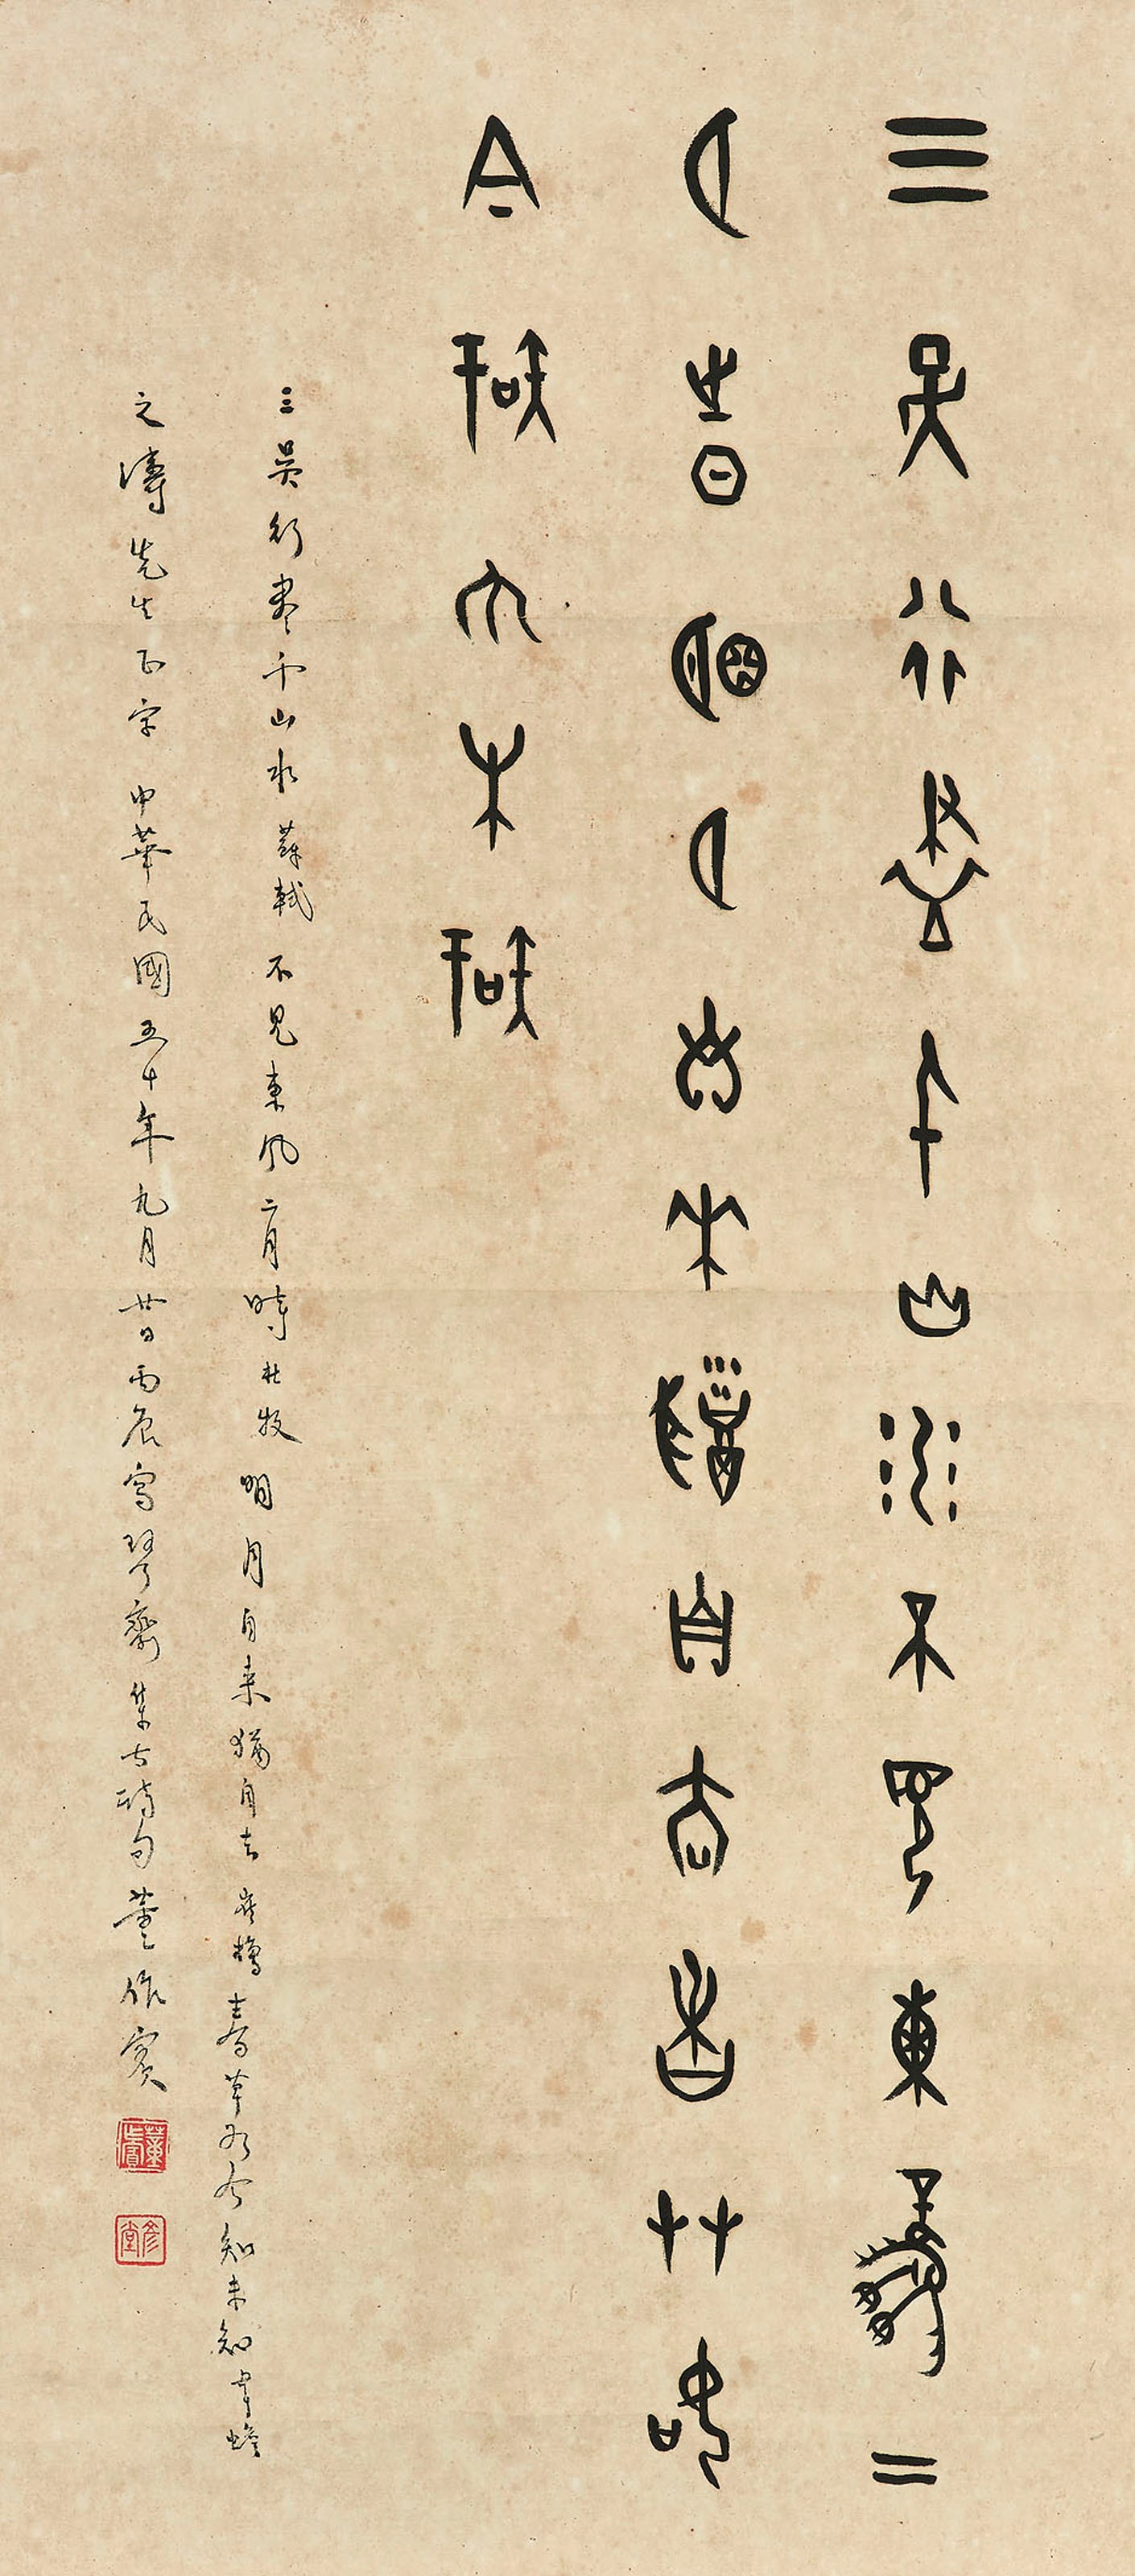 三吳行盡千山水不見東風二
月時明月自來猶自去春草如
今知未知
三吳行盡千山水蘇軾不見東風二月時杜牧明月自來猶自去崔櫓春草如今知未知韋蟾
之濤先生正字 中華民國五十年九月廿日丙辰寫琴齋集古詩句董作賓
董作賓
彥堂